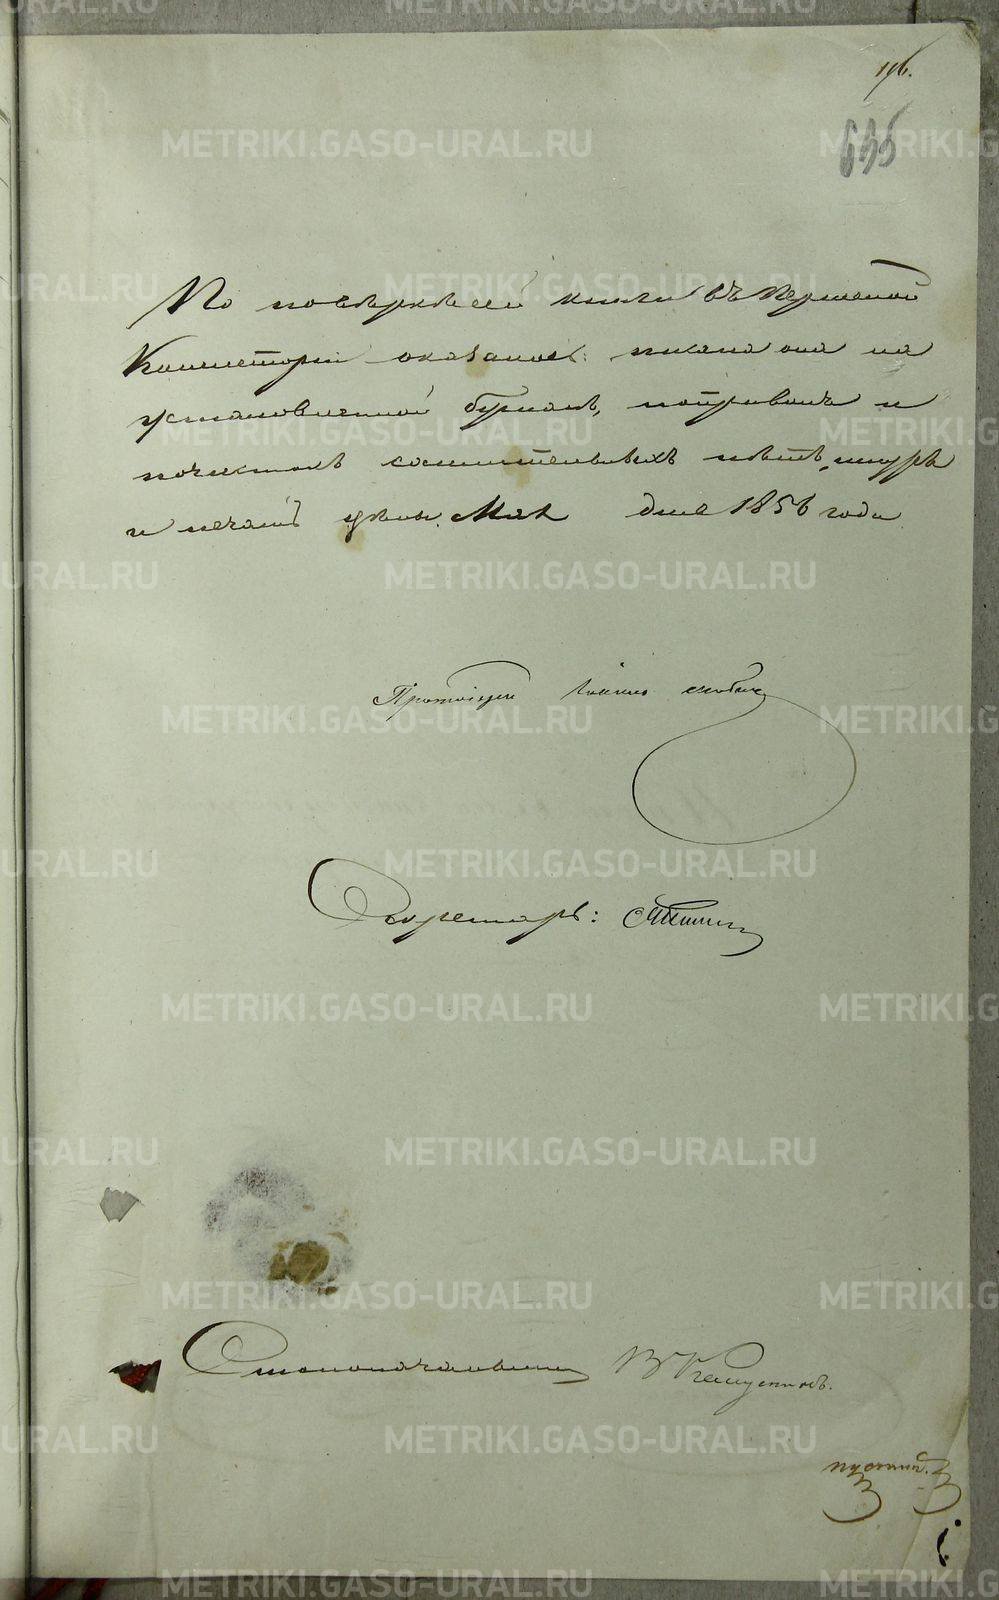 196.
645
По повѣркѣ сей книги въ Пермской
Консисторіи оказалось: писана она на
установленной бумагѣ, поправокъ и
почистокъ сомнительныхъ нѣтъ, шнуръ
и печать цѣлы. Мая дня 1856 года
Протоіерей Іоаннъ
Секретарь:
Столоначальникъ В
METRIKI.GASO-URAL.RU